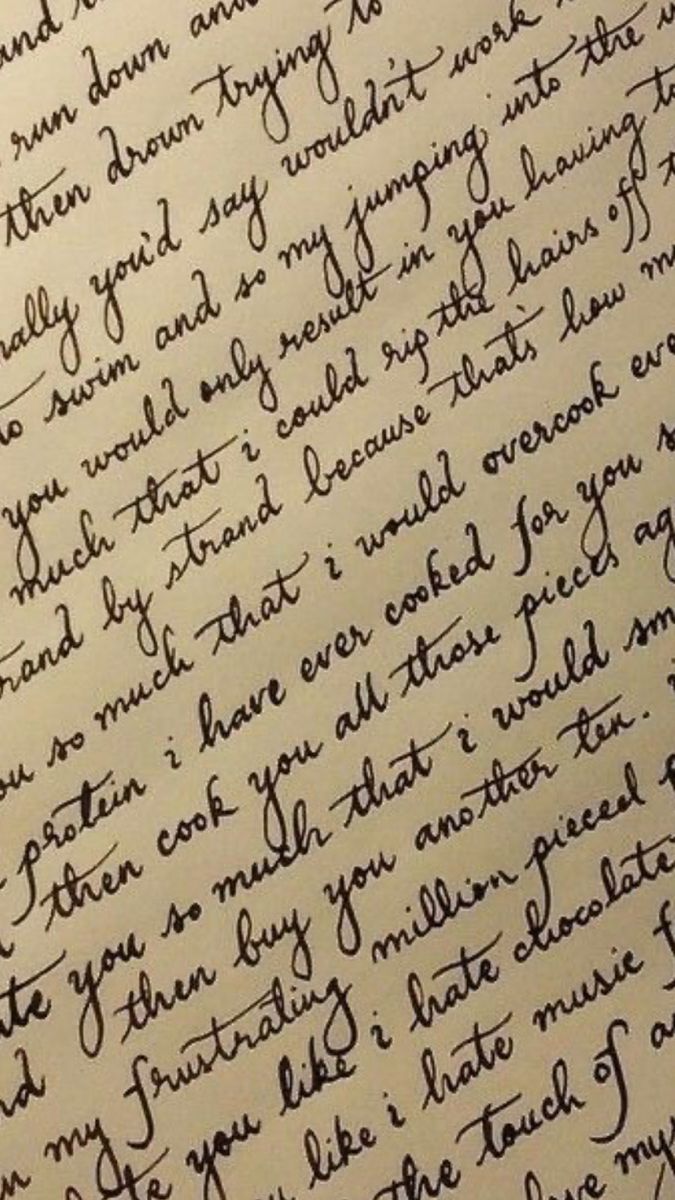 and
run down and
then drown trying to
you'd say wouldn't work
to swim and so my jumping into the
you would only result in you having to
much that i could rip the hairs off
by strand because that's how
you so much that i would overcook
protein i have ever cooked for you
then cook you all those pieces
you so much that i would
then buy you another ten.
my frustrating million pieced
you like i hate chocolate
like i hate music
the touch of